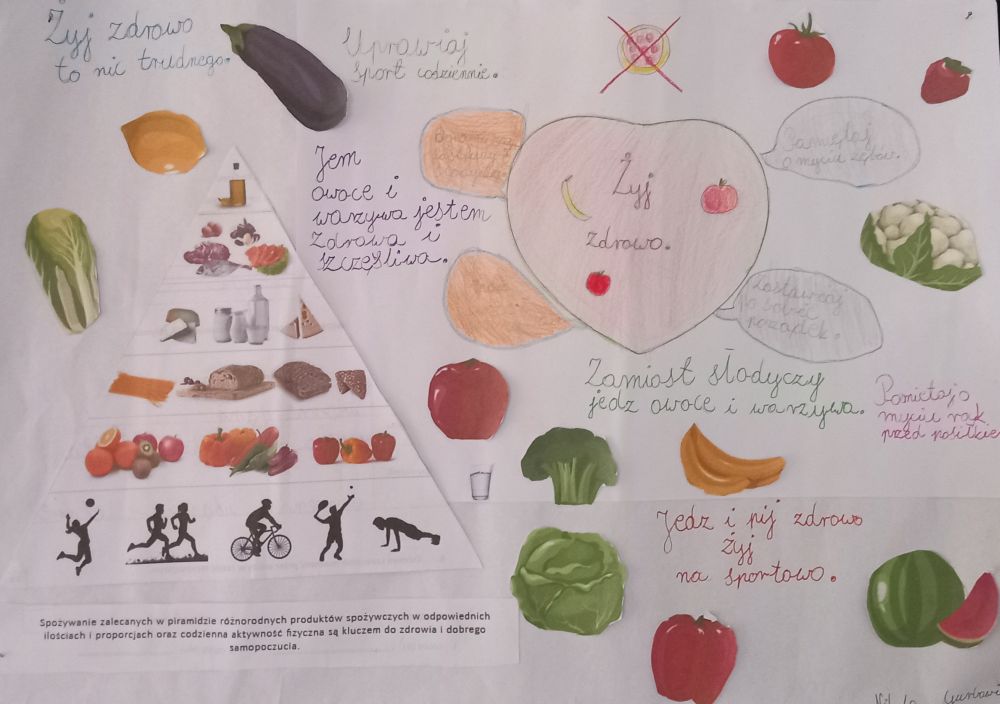 Żyj zdrowo
to nic trudnego.
Uprawiaj
sport codziennie.
Jem
owoce i
warzywa jestem
zdrowa i
szczęśliwa.
Żyj
zdrowo.
Pamiętaj
o myciu zębów.
Zostawiaj
po sobie
porządek.
Zamiast słodyczy
jedz owoce i warzywa.
Pamietaj o
myciu rąk
przed posiłkie
Jedz i pij zdrowo
Żyj
na sportowo.
Spożywanie zalecanych w piramidzie różnorodnych produktów spożywczych w odpowiednich
ilościach i proporcjach oraz codzienna aktywność fizyczna są kluczem do zdrowia i dobrego
samopoczucia.